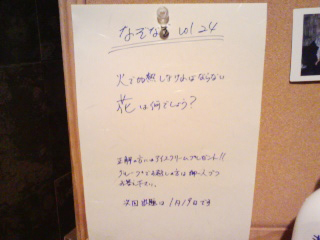 なぞなぞ vol 24
火で加熱しなければならない
花は何でしょう?
正解の方にはアイスクリームプレゼント!!
グループでお越しの方は御一人づつ
お答え下さい。
次回出題は1月19日です